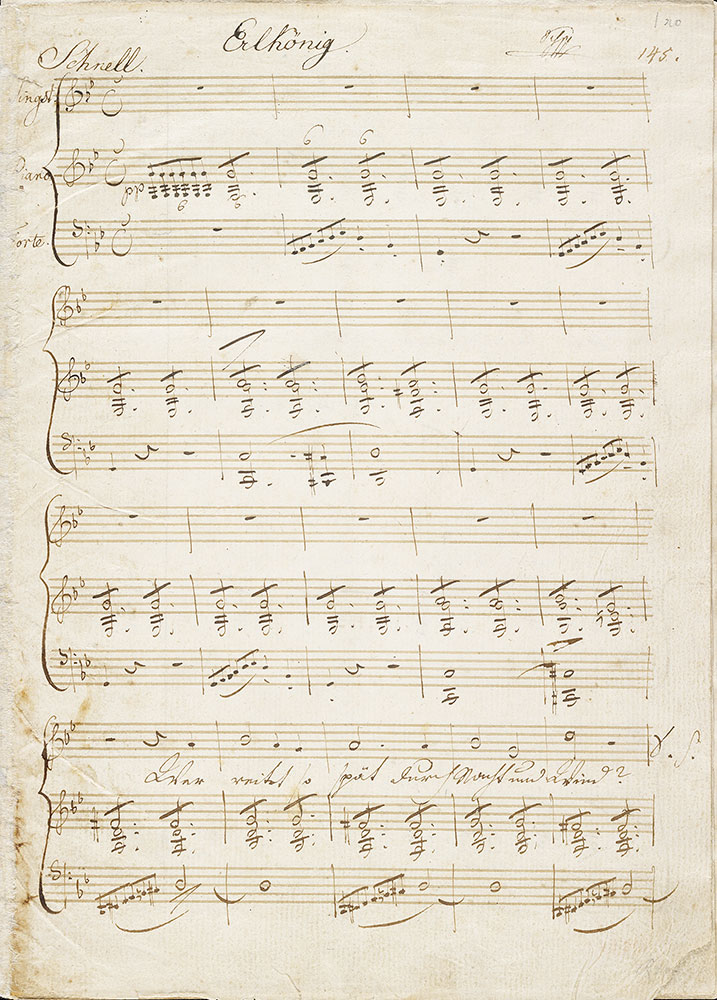 120
Erlkönig.
145.
Schnell.
Singst.
Piano
Forte.
pp
6 6
6 6
Wer reitet so spät durch Nacht und Wind?
V. S.